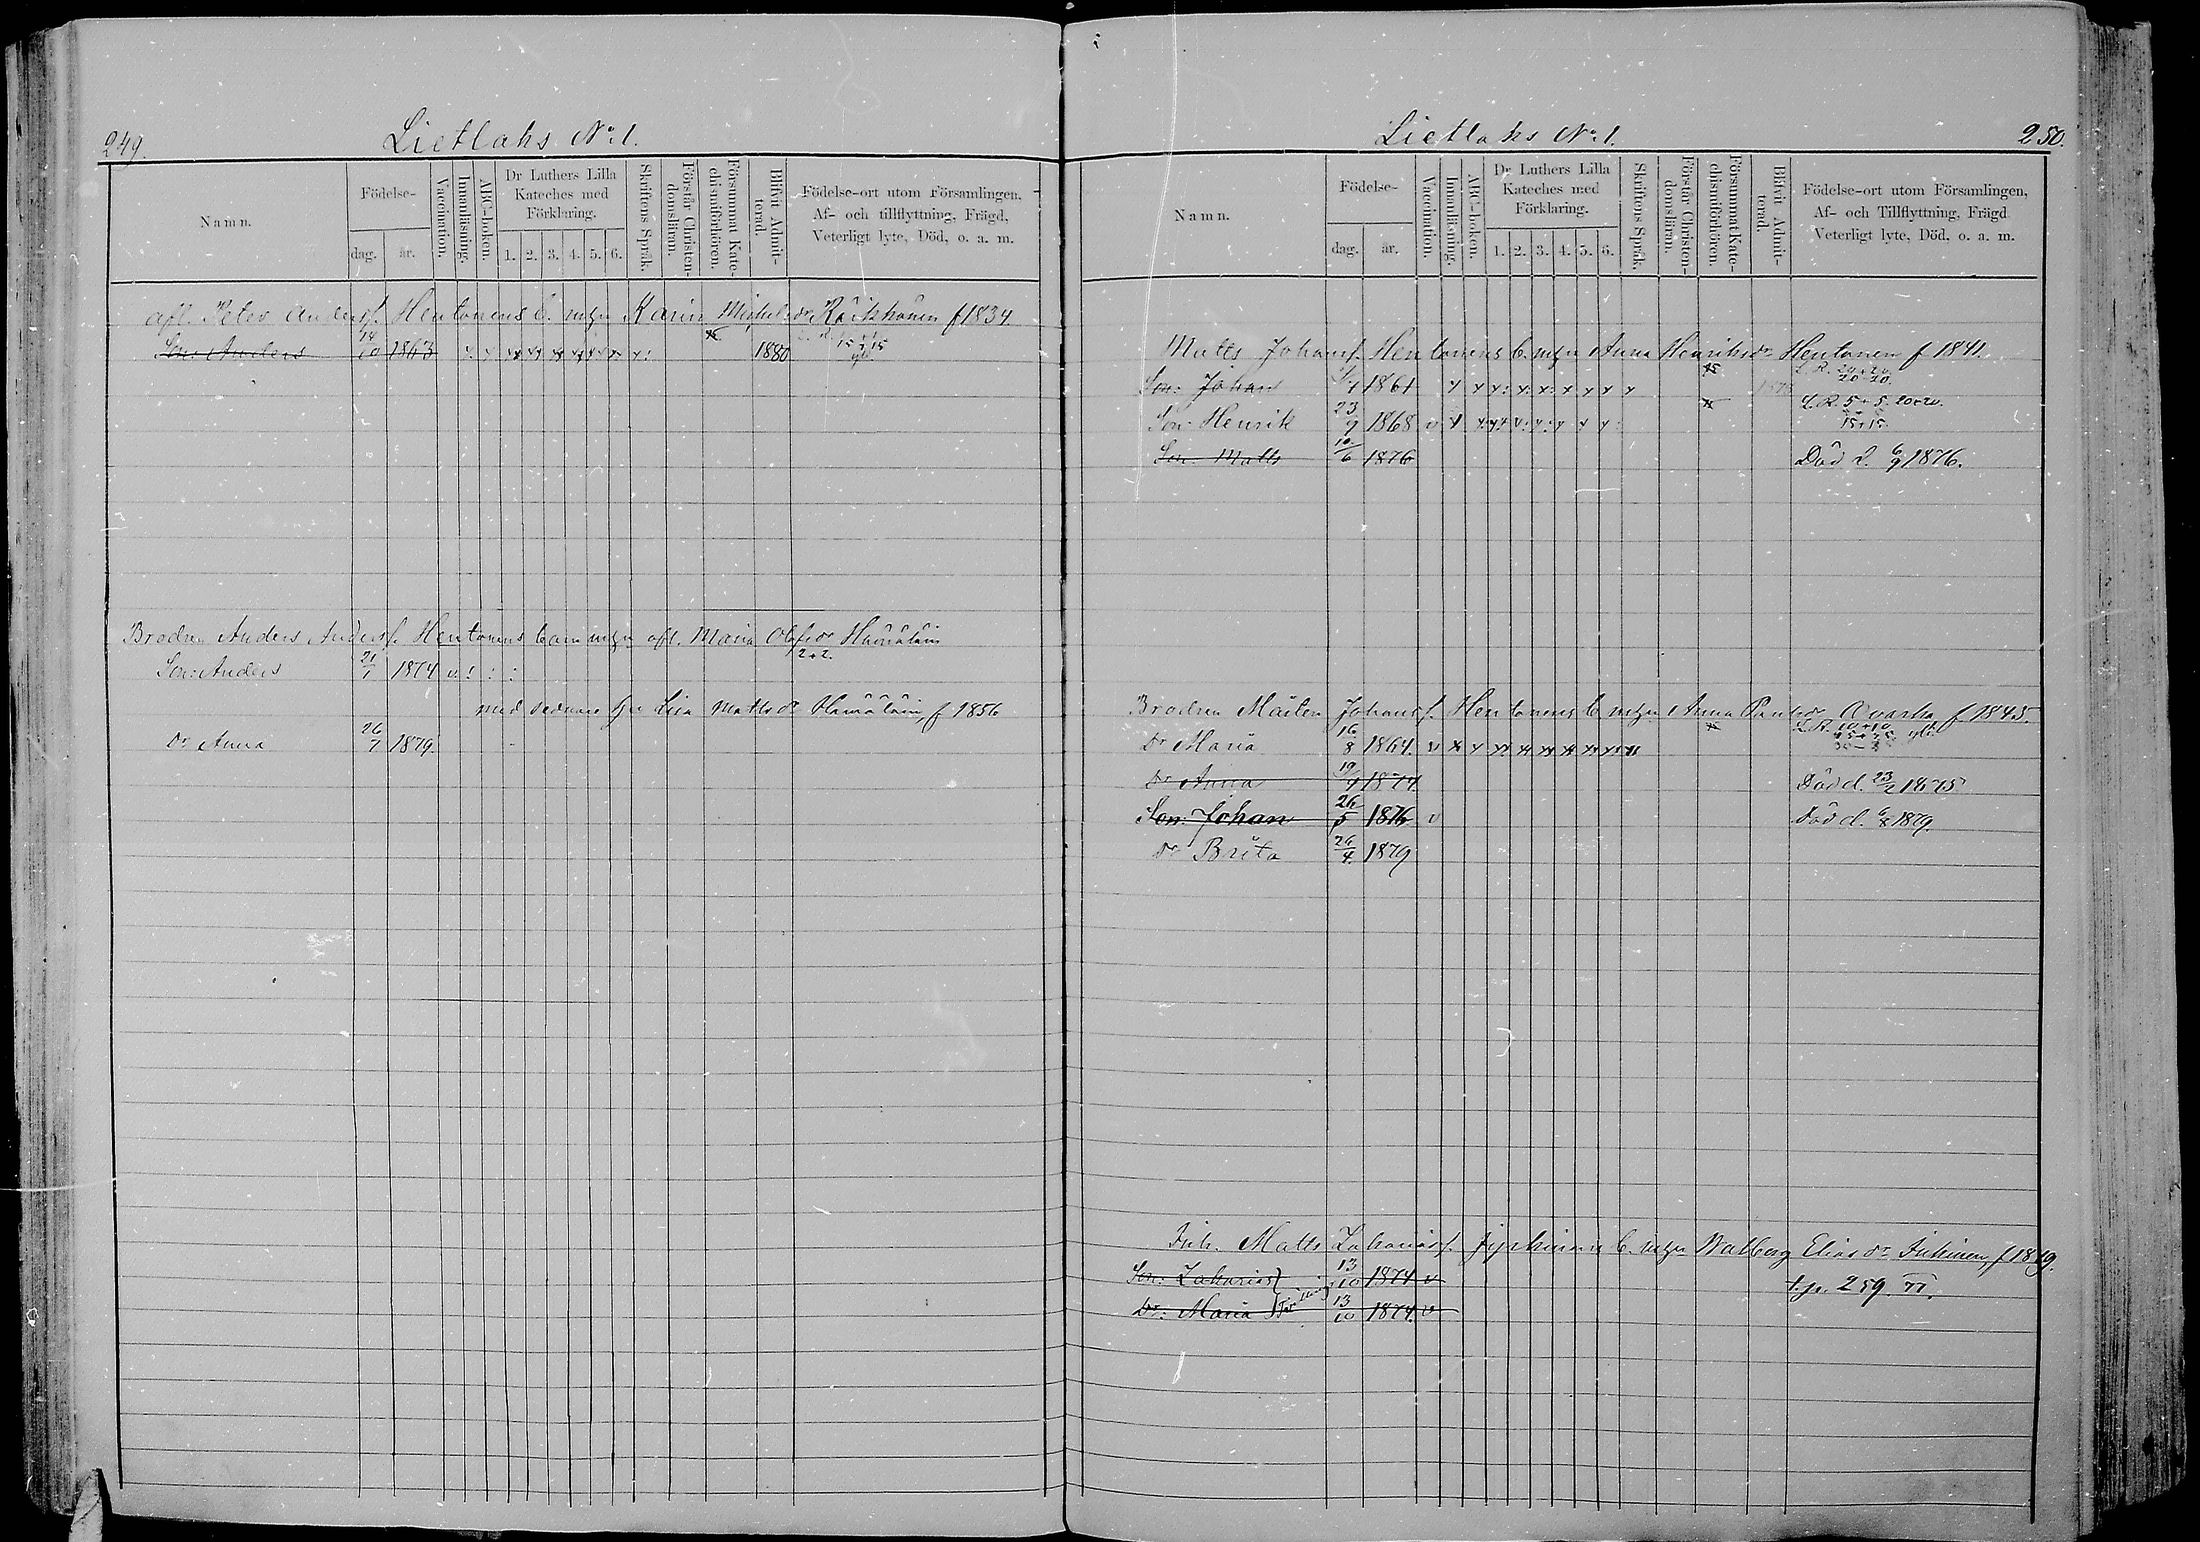 249.
Lietlahs No 1.
Namn.
Födelse-
dag.
år.
Vaccination.
Innanläsning.
ABC-boken.
Dr Luthers Lilla
Kateches med
Förklaring.
1. 2. 3. 4. 5. 6.
Skriftens Språk.
Förstår Christen-
domsläran.
Försummat Kate-
chismiförhören.
Blifvit Admit-
terad.
Födelse-ort utom Församlingen,
Af- och tillflyttning, Frägd,
Veterligt lyte, Död, o. a. m.
afl. Peter Anderss. Hentonens b. m. hu Karin Michelsdr Räikkönen f 1834.
Son: Anders 14/10 1863 1880 15+15
Brodren Anders Anderss. Hentonens barn m. hu afl. Maria Olofsdr Hämäläin
2+2.
Son: Anders 21/1 1874 v
med sednare hu Lisa Mattsdr Hämäläin, f 1856
Dr Anna 26/7 1879.
Lietlahs No 1.
250.
Namn.
Födelse-
dag.
år.
Vaccination.
Innanläsning.
ABC-boken.
Dr Luthers Lilla
Kateches med
Förklaring.
1. 2. 3. 4. 5. 6.
Skriftens Språk.
Förstår Christen-
domsläran.
Försummat Kate-
chismiförhören.
Blifvit Admit-
terad.
Födelse-ort utom Församlingen,
Af- och Tillflyttning, Frägd
Veterligt lyte, Död, o. a. m.
Matts Johanss. Hentonens b. m. hu Anna Henriksdr Hentonen f 1841.
Son: Johan 1861 L. R. 20+20 20+20.
Son: Henrik 23/9 1868 v L. R. 5+5. 20+20. 15+15.
Son: Matts 10/6 1876 Död d. 6/9 1876.
Brodren Mårten Johanss. Hentonens b. m. hu Anna f 1845.
Dr Maria 16/8 1864. v
Dr Anna 19/9 1874 Död d. 23/2 1875
Son: Johan 26/5 1876 v Död d. 6/8 1879.
Dr Brita 26/4 1879
Inh. Matts b. m. hu Walborg Eliasdr
Son: Zakarias 13/10 1874 v t. p. 259
Dr: Maria 13/10 1874. v